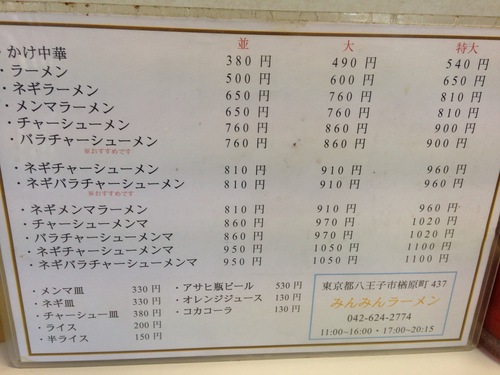 並 大 特大
・かけ中華 380 円 490 円 540 円
・ラーメン 500 円 600 円 650 円
・ネギラーメン 650 円 760 円 810 円
・メンマラーメン 650 円 760 円 810 円
・チャーシューメン 760 円 860 円 900 円
・バラチャーシューメン 760 円 860 円 900 円
※おすすめです
・ネギチャーシューメン 810 円 910 円 960 円
・ネギバラチャーシューメン 810 円 910 円 960 円
※おすすめです
・ネギメンマラーメン 810 円 910 円 960 円
・チャーシューメンマ 860 円 970 円 1020 円
・バラチャーシューメンマ 860 円 970 円 1020 円
・ネギチャーシューメンマ 950 円 1050 円 1100 円
・ネギバラチャーシューメンマ 950 円 1050 円 1100 円
・メンマ皿 330 円
・ネギ皿 330 円
・チャーシュー皿 380 円
・ライス 200 円
・半ライス 150 円
・アサヒ瓶ビール 530 円
・オレンジジュース 130 円
・コカコーラ 130 円
東京都八王子市楢原町 437
みんみんラーメン
042-624-2774
11:00~16:00・17:00~20:15